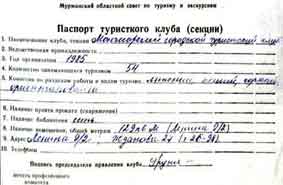 Мурманский областной совет по туризму и экскурсиям
Паспорт туристского клуба (секции)
1. Наименование клуба, секции Мончегорский городской туристский клуб
2. Ведомственная принадлежность
3. Год организации 1985
4. Количество занимающихся туризмом 54
5. Комиссии по разделам работы и видам туризма, лыжный, горный,
ориентирования
6. Наличие пункта проката (снаряжения)
7. Наличие библиотеки
8. Наличие помещения, общий метраж 129 кв м (Ленина 9/2)
9. Адрес Ленина 9/2, Жданова
10. Телефоны
Подпись председателя правления клуба,
печать профсоюзного
комитета